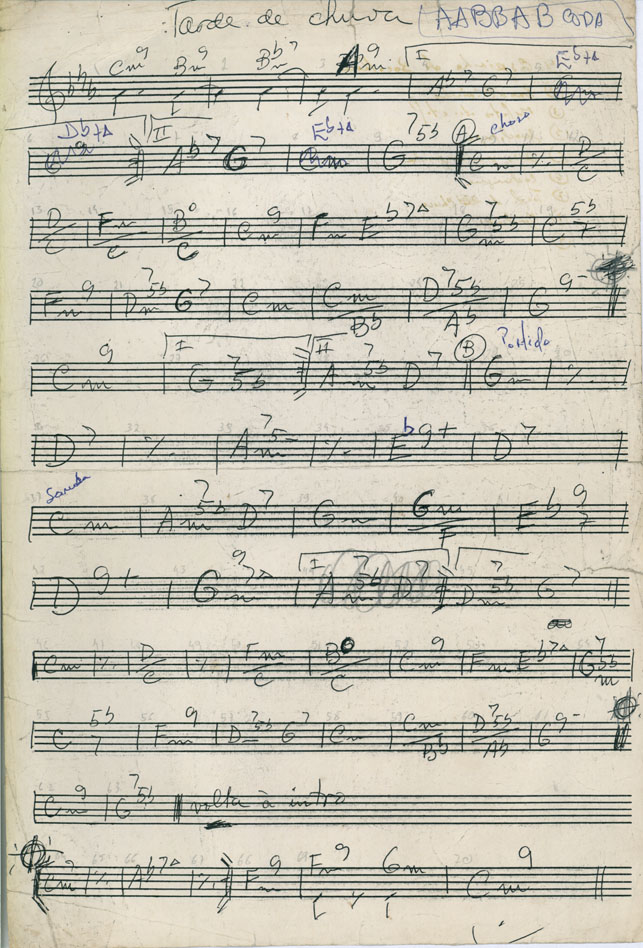 Tarde de chuva AABBAB CODA
Cm9 Bm9 Bb7 m9 I Ab7 G7 Eb7Δ
Db7Δ II Ab7 G7 Eb7Δ G75b A choro Cm ٪ D/C
D/C Fm/C B°/C Cm9 Fm Eb7Δ Gm75b C5b7
Fm9 Dm75b G7 Cm Cm/Bb D75b/Ab G9-
Cm9 I G75b II Am75b D7 B Partido Gm ٪
D7 ٪ Am75- ٪ Eb9+ D7
Samba Cm Am75b D7 Gm Gm/F Eb97
D9+ Gm97Δ I Am75b D7 Dm75b G7
Cm ٪ D/C ٪ Fm/C B°/C Cm9 Fm Eb7Δ Gm75b
C5b7 Fm9 Dm75b G7 Cm Cm/Bb D75b/Ab G9-
Cm9 G75b volta à intro
Cm9 ٪ Ab7Δ ٪ Fm9 Fm9 Gm Cm9